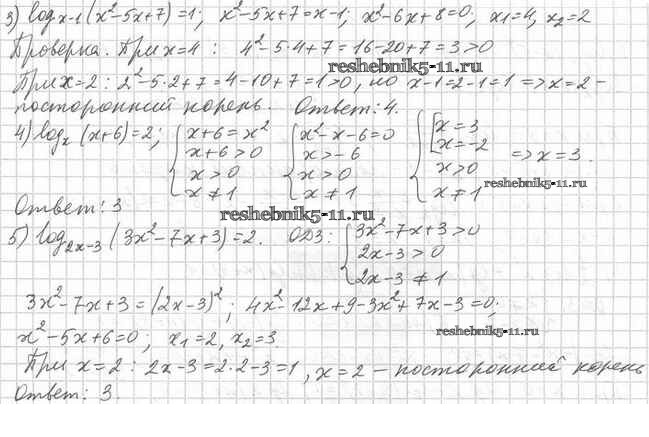 3) log_{x-1}(x²-5x+7)=1; x²-5x+7=x-1; x²-6x+8=0; x₁=4, x₂=2
Проверка. При x=4 : 4²-5·4+7=16-20+7=3>0
reshebnik5-11.ru
При x=2 : 2²-5·2+7=4-10+7=1>0, но x-1=2-1=1 => x=2 -
посторонний корень. Ответ: 4.
4) log_x(x+6)=2; { x+6=x² { x²-x-6=0 { [ x=3
x+6>0 x>-6 x=-2
x>0 x>0 x>0 => x=3.
x≠1 x≠1 x≠1
reshebnik5-11.ru
Ответ: 3
reshebnik5-11.ru
5) log_{2x-3}(3x²-7x+3)=2. ОДЗ: { 3x²-7x+3>0
2x-3>0
2x-3≠1
3x²-7x+3=(2x-3)²; 4x²-12x+9-3x²+7x-3=0;
x²-5x+6=0; x₁=2, x₂=3
reshebnik5-11.ru
При x=2 : 2x-3=2·2-3=1, x=2 - посторонний корень
Ответ: 3.